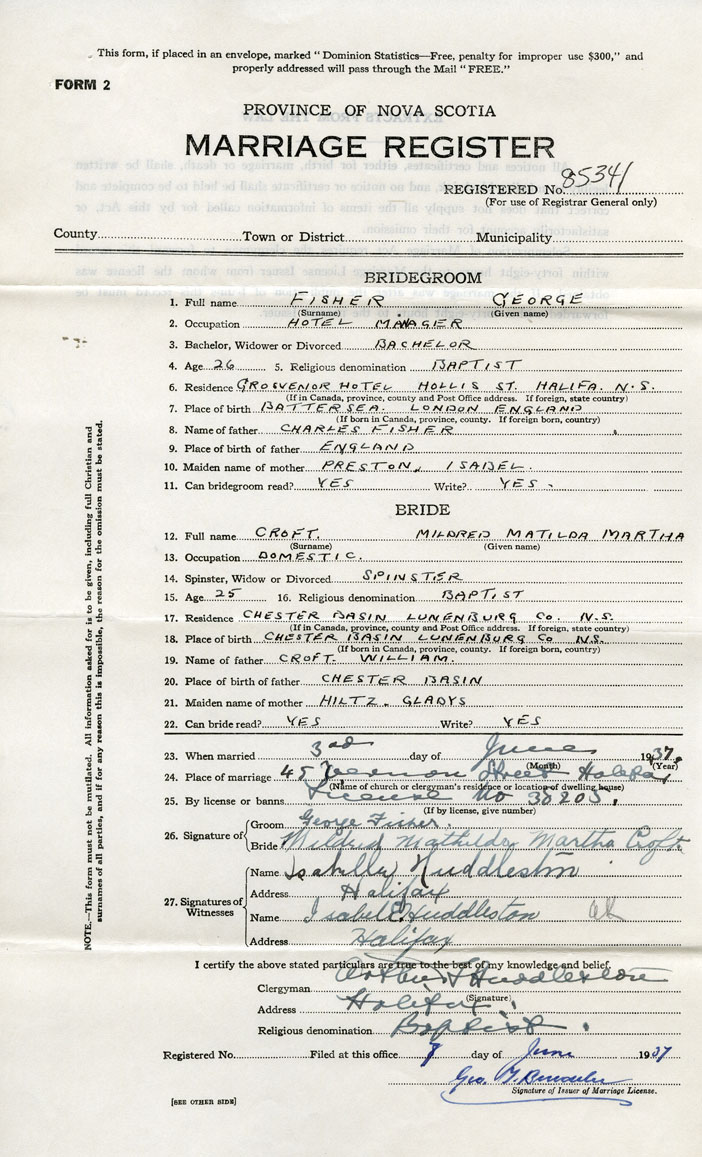 This form, if placed in an envelope, marked "Dominion Statistics—Free, penalty for improper use $300," and
properly addressed will pass through the Mail "FREE."
FORM 2
PROVINCE OF NOVA SCOTIA
MARRIAGE REGISTER
REGISTERED No. 85341
(For use of Registrar General only)
County Town or District Municipality
BRIDEGROOM
1. Full name FISHER GEORGE
(Surname) (Given name)
2. Occupation HOTEL MANAGER
3. Bachelor, Widower or Divorced BACHELOR
4. Age 26 5. Religious denomination BAPTIST
6. Residence GROSVENOR HOTEL HOLLIS ST. HALIFA. N.S.
(If in Canada, province, county and Post Office address. If foreign, state country)
7. Place of birth BATTERSEA. LONDON ENGLAND
(If born in Canada, province, county. If foreign born, country)
8. Name of father CHARLES FISHER
9. Place of birth of father ENGLAND
10. Maiden name of mother PRESTON, ISABEL.
11. Can bridegroom read? YES Write? YES.
BRIDE
12. Full name CROFT. MILDRED MATILDA MARTHA
(Surname) (Given name)
13. Occupation DOMESTIC.
14. Spinster, Widow or Divorced SPINSTER
15. Age 25 16. Religious denomination BAPTIST
17. Residence CHESTER BASIN LUNENBURG Co. N.S.
(If in Canada, province, county and Post Office address. If foreign, state country)
18. Place of birth CHESTER BASIN LUNENBURG Co N.S.
(If born in Canada, province, county. If foreign born, country)
19. Name of father CROFT. WILLIAM.
20. Place of birth of father CHESTER BASIN
21. Maiden name of mother HILTZ. GLADYS
22. Can bride read? YES Write? YES
23. When married 3rd day of June 1937.
(Month) (Year)
24. Place of marriage 45 Vernon Street Halifax
(Name of church or clergyman's residence or location of dwelling house)
25. By license or banns License No 38205.
(If by license, give number)
26. Signature of Groom George Fisher.
Bride Mildred Mathilda Martha Croft
27. Signatures of Witnesses Name Isabella Huddleston
Address Halifax
Name Isabel Huddleston
Address Halifax
I certify the above stated particulars are true to the best of my knowledge and belief.
Clergyman Arthur Huddleston
(Signature)
Address Halifax.
Religious denomination Baptist.
Registered No. Filed at this office 7 day of June 1937
Geo.
Signature of Issuer of Marriage License.
[SEE OTHER SIDE]
NOTE.—This form must not be mutilated. All information asked for is to be given, including full Christian and
surnames of all parties, and if for any reason this is impossible, the reason for the omission must be stated.